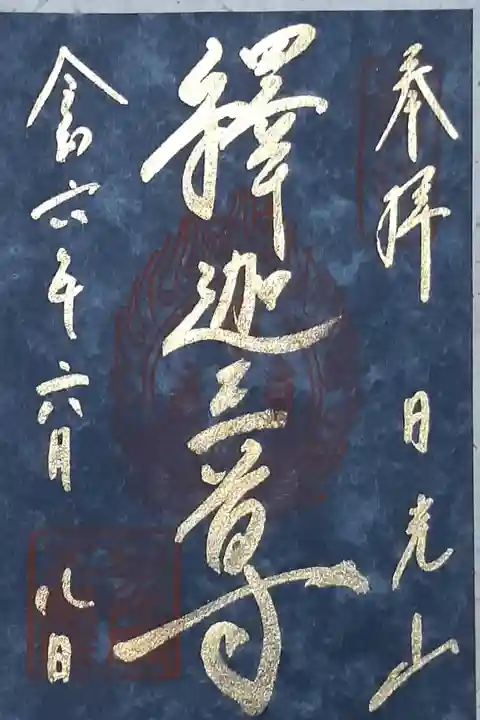 奉拝 日光山
釋迦三尊
令和六年 六月 八日